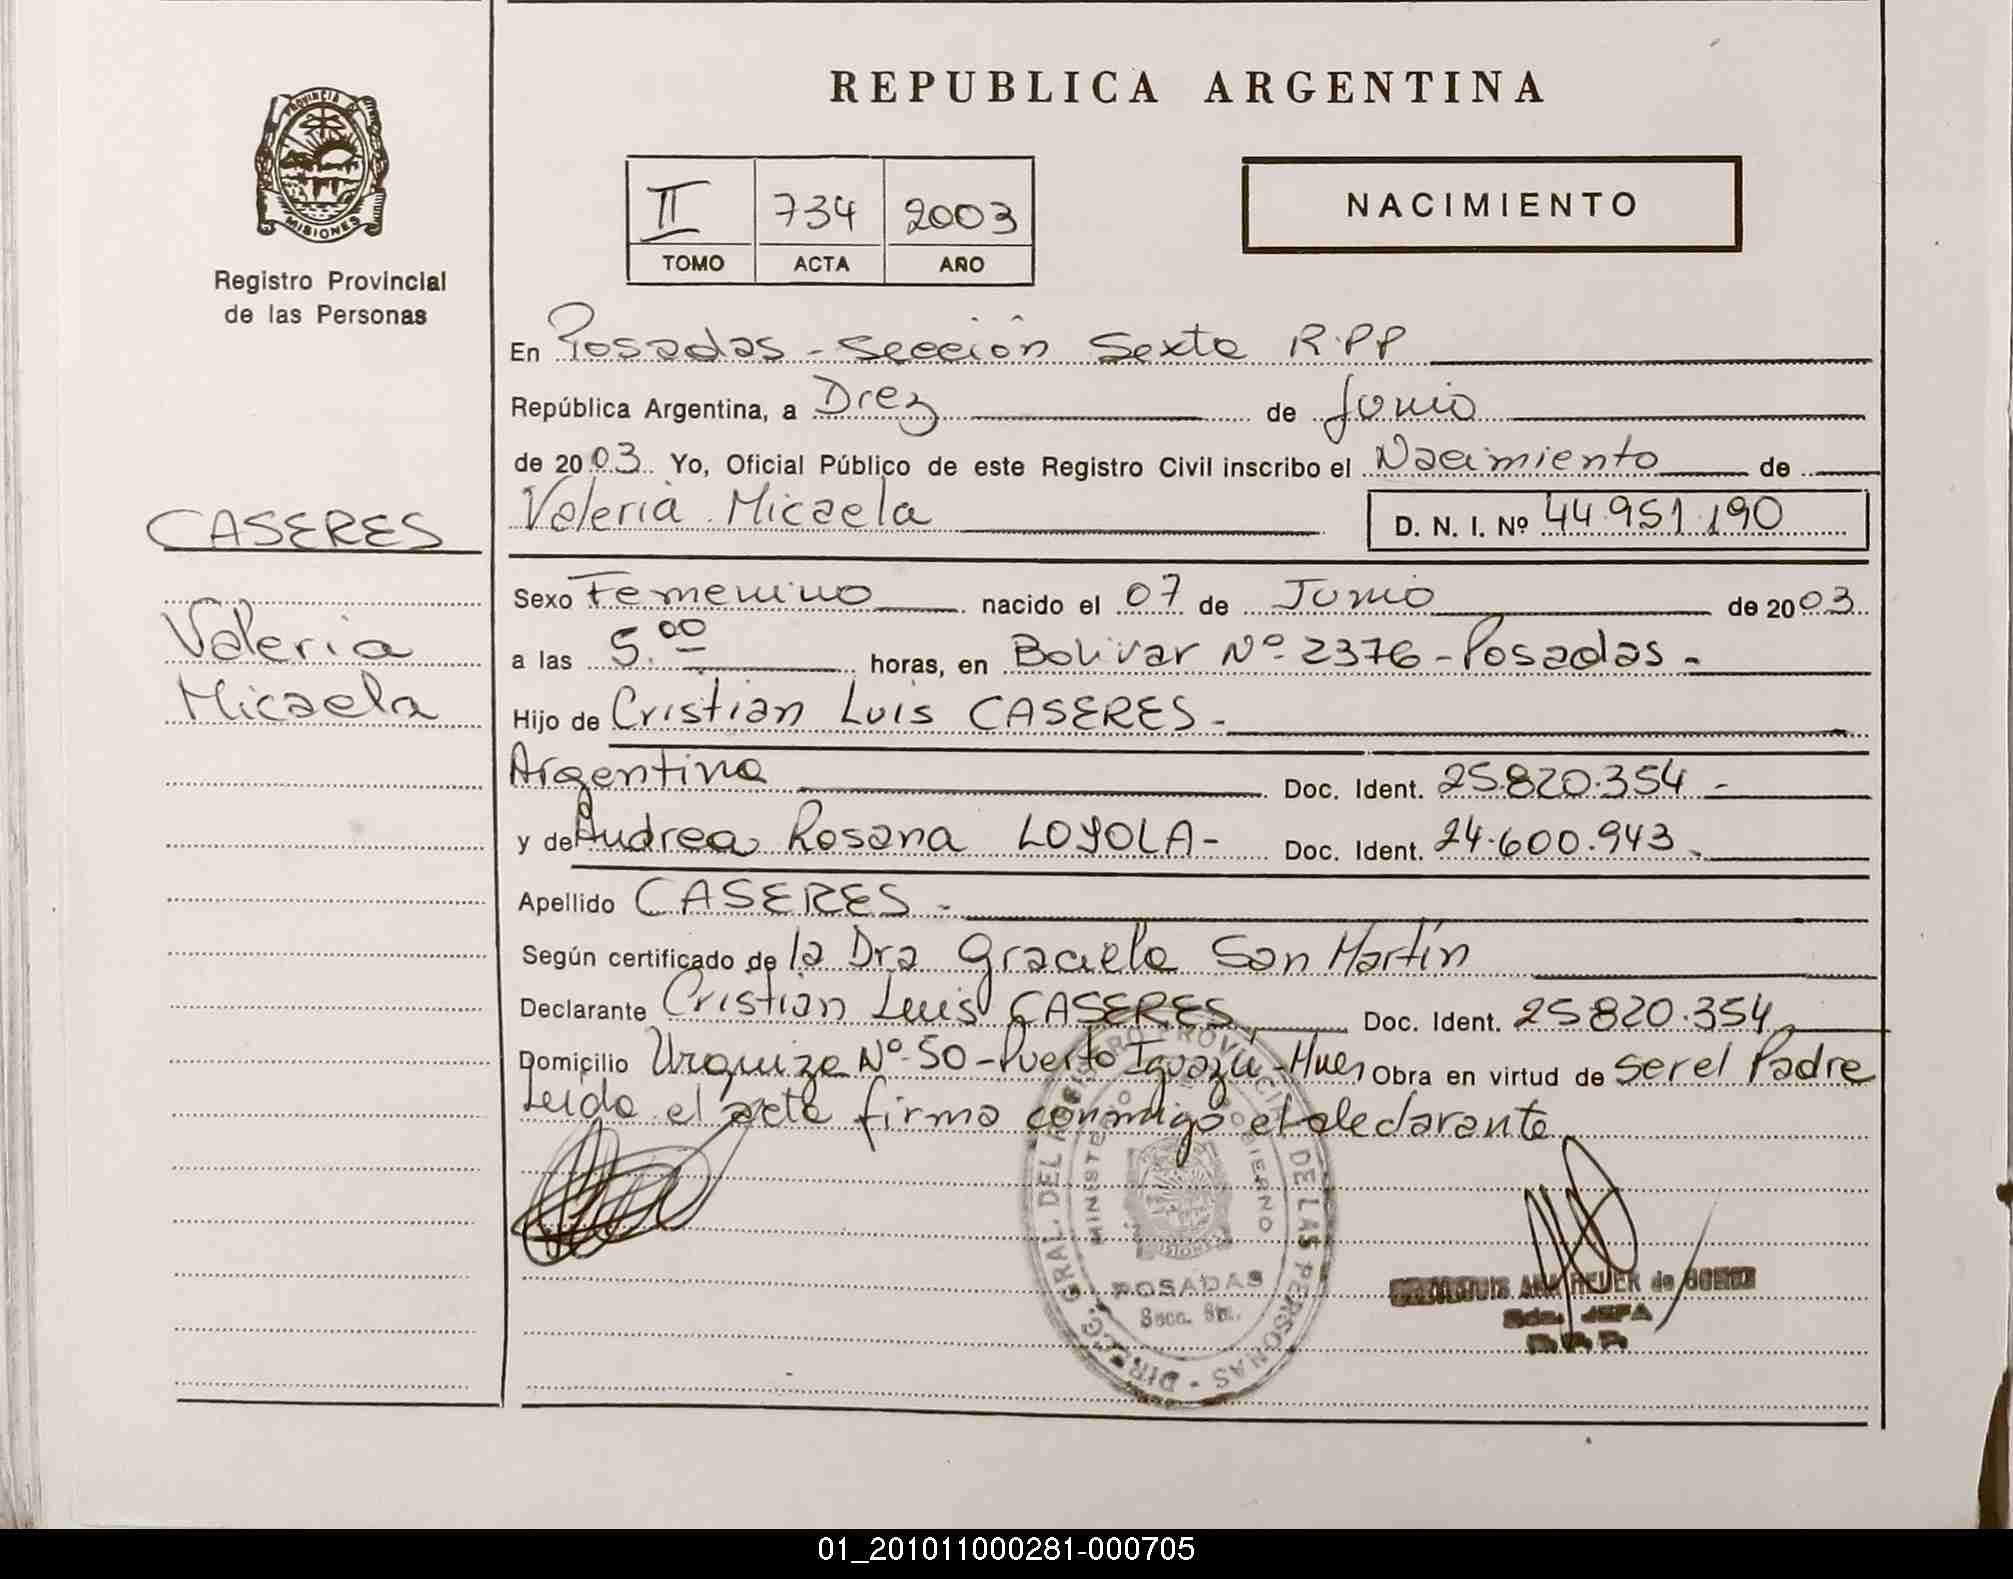 REPUBLICA ARGENTINA
PROVINCIA DE
MISIONES
Registro Provincial
de las Personas
II 734 2003
TOMO ACTA AÑO
NACIMIENTO
En Posadas - Sección Sexta R.P.P
República Argentina, a Diez de Junio
de 2003. Yo, Oficial Público de este Registro Civil inscribo el Nacimiento de
Valeria Micaela D. N. I. Nº 44.951.190
CASERES
Valeria
Micaela
Sexo Femenino nacido el 07 de Junio de 2003
a las 5.00 horas, en Bolivar Nº 2376 - Posadas -
Hijo de Cristian Luis CASERES -
Argentina Doc. Ident. 25.820.354 -
y de Andrea Rosana LOYOLA - Doc. Ident. 24.600.943.
Apellido CASERES -
Según certificado de la Dra Graciela San Martín
Declarante Cristian Luis CASERES Doc. Ident. 25820.354
Domicilio Urquiza Nº 50 - Puerto Iguazú - Mnes Obra en virtud de ser el Padre
Leida el acta firma conmigo el declarante
DIREC. GRAL. DEL REGISTRO PROVINCIAL DE LAS PERSONAS
MINISTERIO DE GOBIERNO
MISIONES
POSADAS
Secc. 6ta.
ANA REUER de
JEFA
R.P.P.
01_201011000281-000705